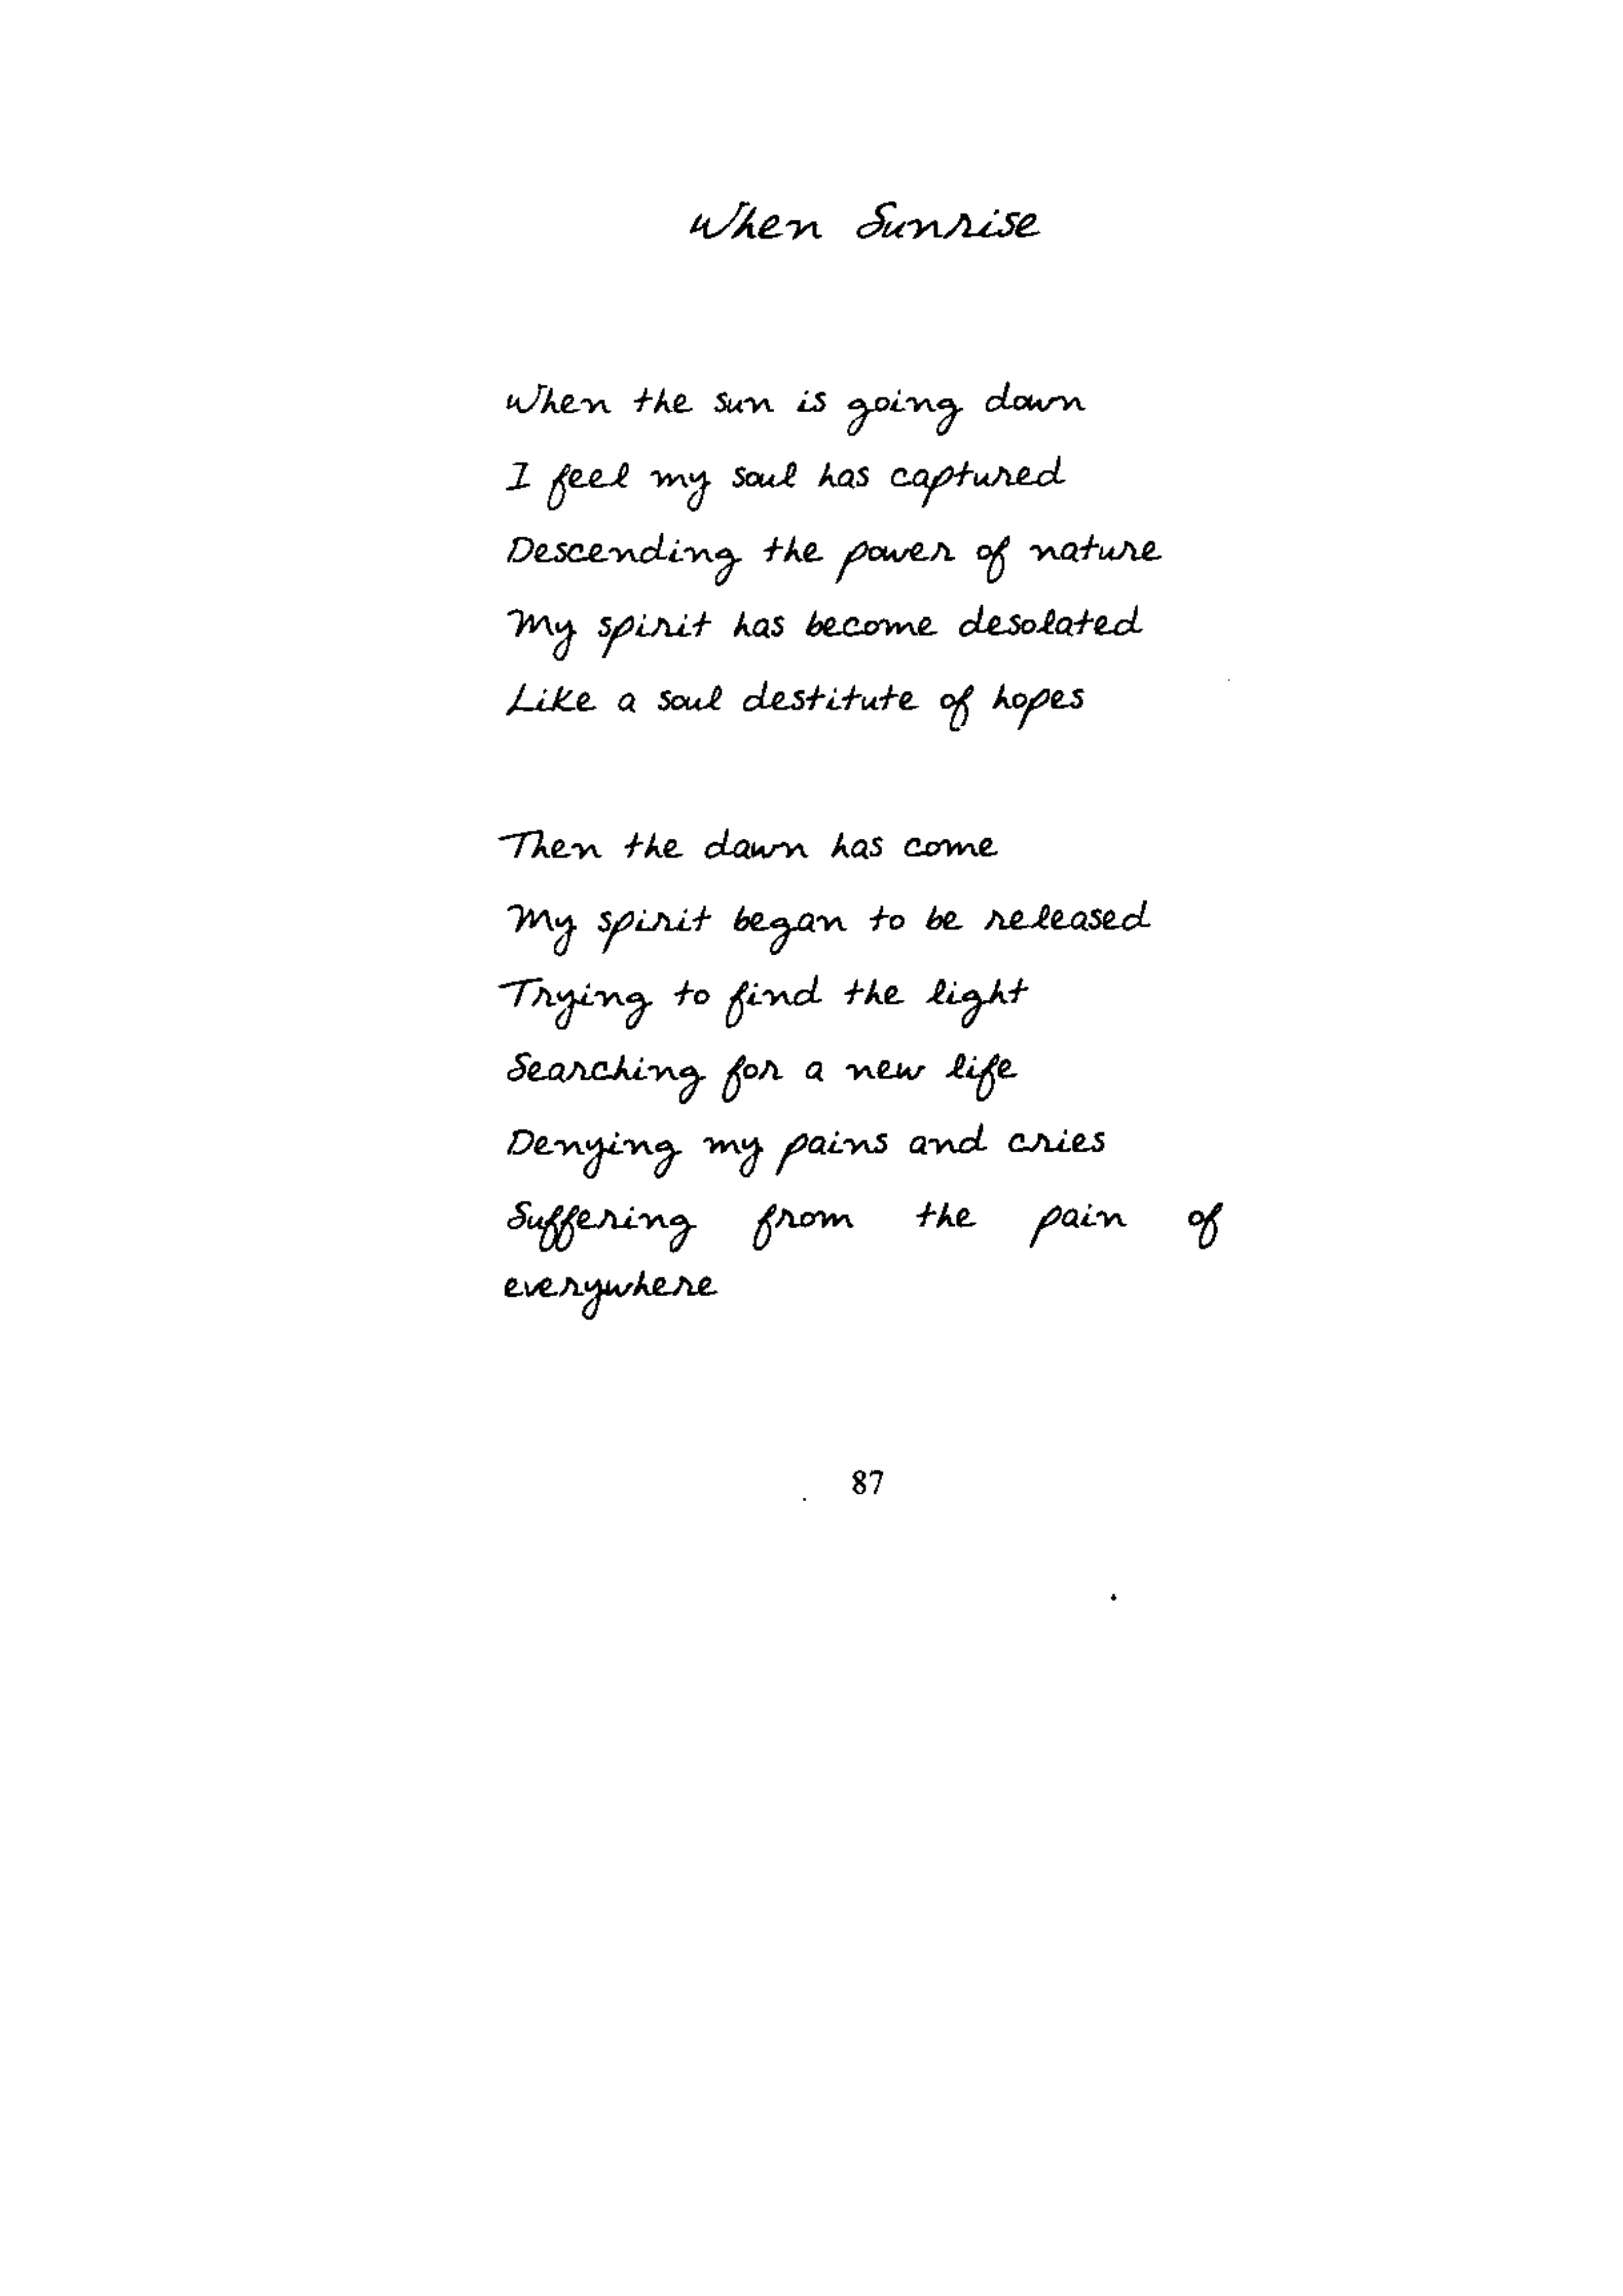 When Sunrise
When the sun is going down
I feel my soul has captured
Descending the power of nature
My spirit has become desolated
Like a soul destitute of hopes
Then the dawn has come
My spirit began to be released
Trying to find the light
Searching for a new life
Denying my pains and cries
Suffering from the pain of
everywhere
87